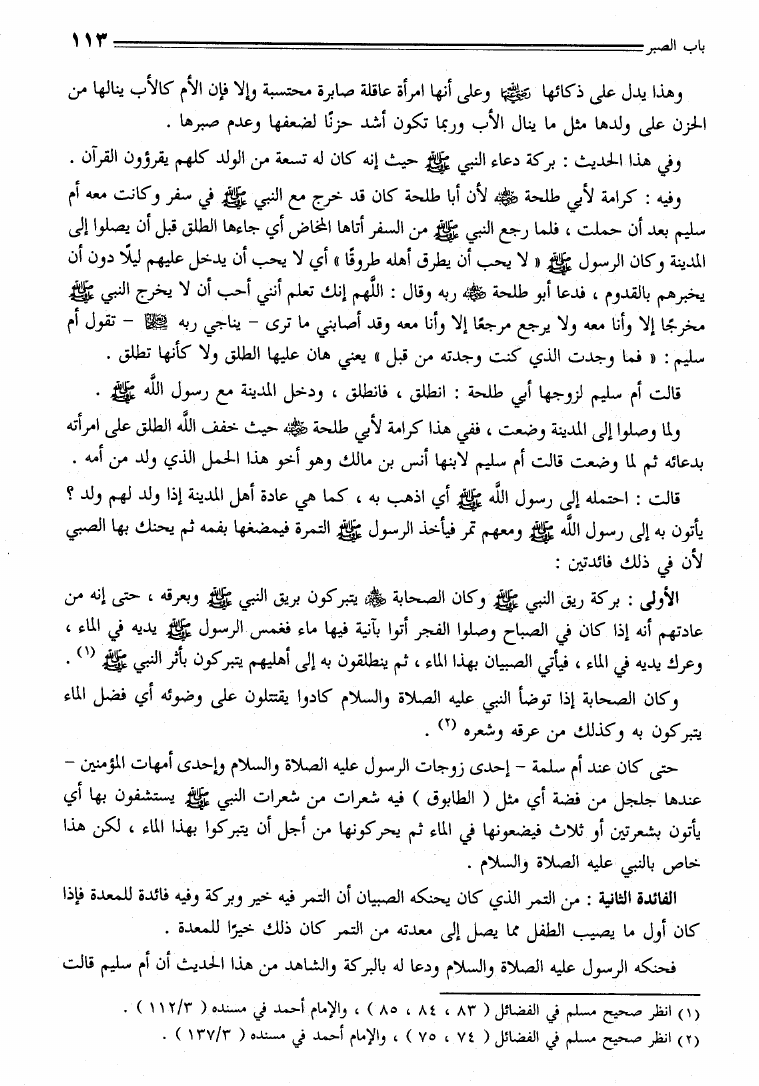 باب الصبر ١١٣
وهذا يدل على ذكائها رضي الله عنها وعلى أنها امرأة عاقلة صابرة محتسبة وإلا فإن الأم كالأب ينالها من
الحزن على ولدها مثل ما ينال الأب وربما تكون أشد حزنًا لضعفها وعدم صبرها .
وفي هذا الحديث : بركة دعاء النبي ﷺ حيث إنه كان له تسعة من الولد كلهم يقرؤون القرآن .
وفيه : كرامة لأبي طلحة رضي الله عنه لأن أبا طلحة كان قد خرج مع النبي ﷺ في سفر وكانت معه أم
سليم بعد أن حملت ، فلما رجع النبي ﷺ من السفر أتاها المخاض أي جاءها الطلق قبل أن يصلوا إلى
المدينة وكان الرسول ﷺ « لا يحب أن يطرق أهله طروقًا » أي لا يحب أن يدخل عليهم ليلًا دون أن
يخبرهم بالقدوم ، فدعا أبو طلحة رضي الله عنه ربه وقال : اللَّهم إنك تعلم أنني أحب أن لا يخرج النبي ﷺ
مخرجًا إلا وأنا معه ولا يرجع مرجعًا إلا وأنا معه وقد أصابني ما ترى – يناجي ربه – تقول أم
سليم : « فما وجدت الذي كنت وجدته من قبل » يعني هان عليها الطلق ولا كأنها تطلق .
قالت أم سليم لزوجها أبي طلحة : انطلق ، فانطلق ، ودخل المدينة مع رسول اللَّه ﷺ .
ولما وصلوا إلى المدينة وضعت ، ففي هذا كرامة لأبي طلحة رضي الله عنه حيث خفف اللَّه الطلق على امرأته
بدعائه ثم لما وضعت قالت أم سليم لابنها أنس بن مالك وهو أخو هذا الحمل الذي ولد من أمه .
قالت : احتمله إلى رسول اللَّه ﷺ أي اذهب به ، كما هي عادة أهل المدينة إذا ولد لهم ولد ؟
يأتون به إلى رسول اللَّه ﷺ ومعهم تمر فيأخذ الرسول ﷺ التمرة فيمضغها بفمه ثم يحنك بها الصبي
لأن في ذلك فائدتين :
الأولى : بركة ريق النبي ﷺ وكان الصحابة رضي الله عنهم يتبركون بريق النبي ﷺ وبعرقه ، حتى إنه من
عادتهم أنه إذا كان في الصباح وصلوا الفجر أتوا بآنية فيها ماء فغمس الرسول ﷺ يديه في الماء ،
وعرك يديه في الماء ، فيأتي الصبيان بهذا الماء ، ثم ينطلقون به إلى أهليهم يتبركون بأثر النبي ﷺ (١) .
وكان الصحابة إذا توضأ النبي عليه الصلاة والسلام كادوا يقتتلون على وضوئه أي فضل الماء
يتبركون به وكذلك من عرقه وشعره (٢) .
حتى كان عند أم سلمة – إحدى زوجات الرسول عليه الصلاة والسلام وإحدى أمهات المؤمنين –
عندها جلجل من فضة أي مثل ( الطابوق ) فيه شعرات من شعرات النبي ﷺ يستشفون بها أي
يأتون بشعرتين أو ثلاث فيضعونها في الماء ثم يحركونها من أجل أن يتبركوا بهذا الماء ، لكن هذا
خاص بالنبي عليه الصلاة والسلام .
الفائدة الثانية : من التمر الذي كان يحنكه الصبيان أن التمر فيه خير وبركة وفيه فائدة للمعدة فإذا
كان أول ما يصيب الطفل مما يصل إلى معدته من التمر كان ذلك خيرًا للمعدة .
فحنكه الرسول عليه الصلاة والسلام ودعا له بالبركة والشاهد من هذا الحديث أن أم سليم قالت
(١) انظر صحيح مسلم في الفضائل ( ٨٣ ، ٨٤ ، ٨٥ ) ، والإمام أحمد في مسنده ( ١١٢/٣ ) .
(٢) انظر صحيح مسلم في الفضائل ( ٧٤ ، ٧٥ ) ، والإمام أحمد في مسنده ( ١٣٧/٣ ) .